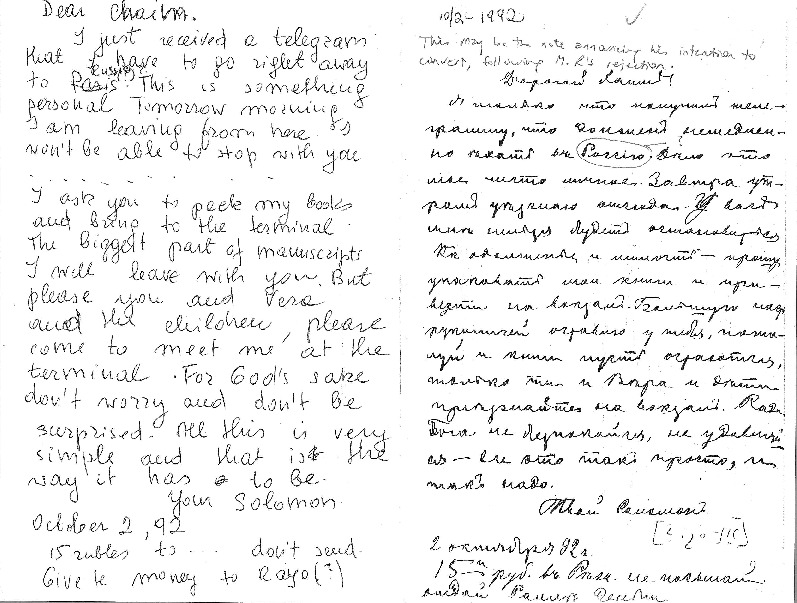 Dear Chaim.
I just received a telegram
that I have to go right away
Russia
to Paris. This is something
personal Tomorrow morning
I am leaving from here. I
won't be able to stop with you
. . . . . . . . . . . . . . . . .
I ask you to pack my books
and bring to the terminal.
The biggest part of manuscripts
I will leave with you. But
please you and Vera
and the children, please
come to meet me at the
terminal. For God's sake
don't worry and don't be
surprised. All this is very
simple and that is the
way it has to be.
Your Solomon.
October 2, 92
15 rubles to ... don't send.
Give k money to Rayo(?)
10/2-1892
This may be the note announcing his intention to
convert, following M. R's rejection.
Дорогой Хаим!
Я только что получил теле-
грамму, что должен немедлен-
но ехать въ Россію. Дѣло это
мое чисто личное. Завтра ут-
ромъ уѣзжаю отсюда. У васъ
мнѣ нельзя будетъ остановиться
прошу
упаковать мои книги и при-
везти на вокзалъ. Большую часть
рукописей оставлю у тебя, пожа-
луй и книги пусть остаются,
только ты и Вѣра и дѣти
приѣзжайте на вокзалъ. Ради
Бога не безпокойся, не удивляй-
ся — все это такъ просто, и
такъ надо.
Твой Соломонъ
2 октября 92 г.
15 руб. въ не посылай
отдай